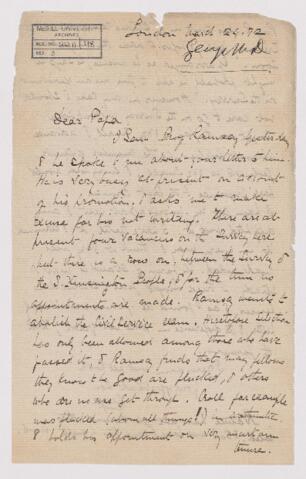 McGILL UNIVERSITY
ARCHIVES
ACC. NO.
REF.
London March 24. 72
George M D
Dear Papa
I saw Prof Ramsay yesterday
& he spoke to me about your letter to him.
He is very busy at present on account
of his promotion, & asks me to make
excuse for his not writing. There are at
present four vacancies on the Survey here
but there is a row on, between the Survey &
the S. Kensington People, & for the time no
appointments are made. Ramsay wants to
abolish the Civil Service exam. Heretofore selection
has only been allowed among those who have
passed it, & Ramsay finds that many fellows
they know to be good are plucked, & others
who are no use get through. Croll for example
was plucked (above all things!) in arithmetic
& holds his appointment on very uncertain
tenure.